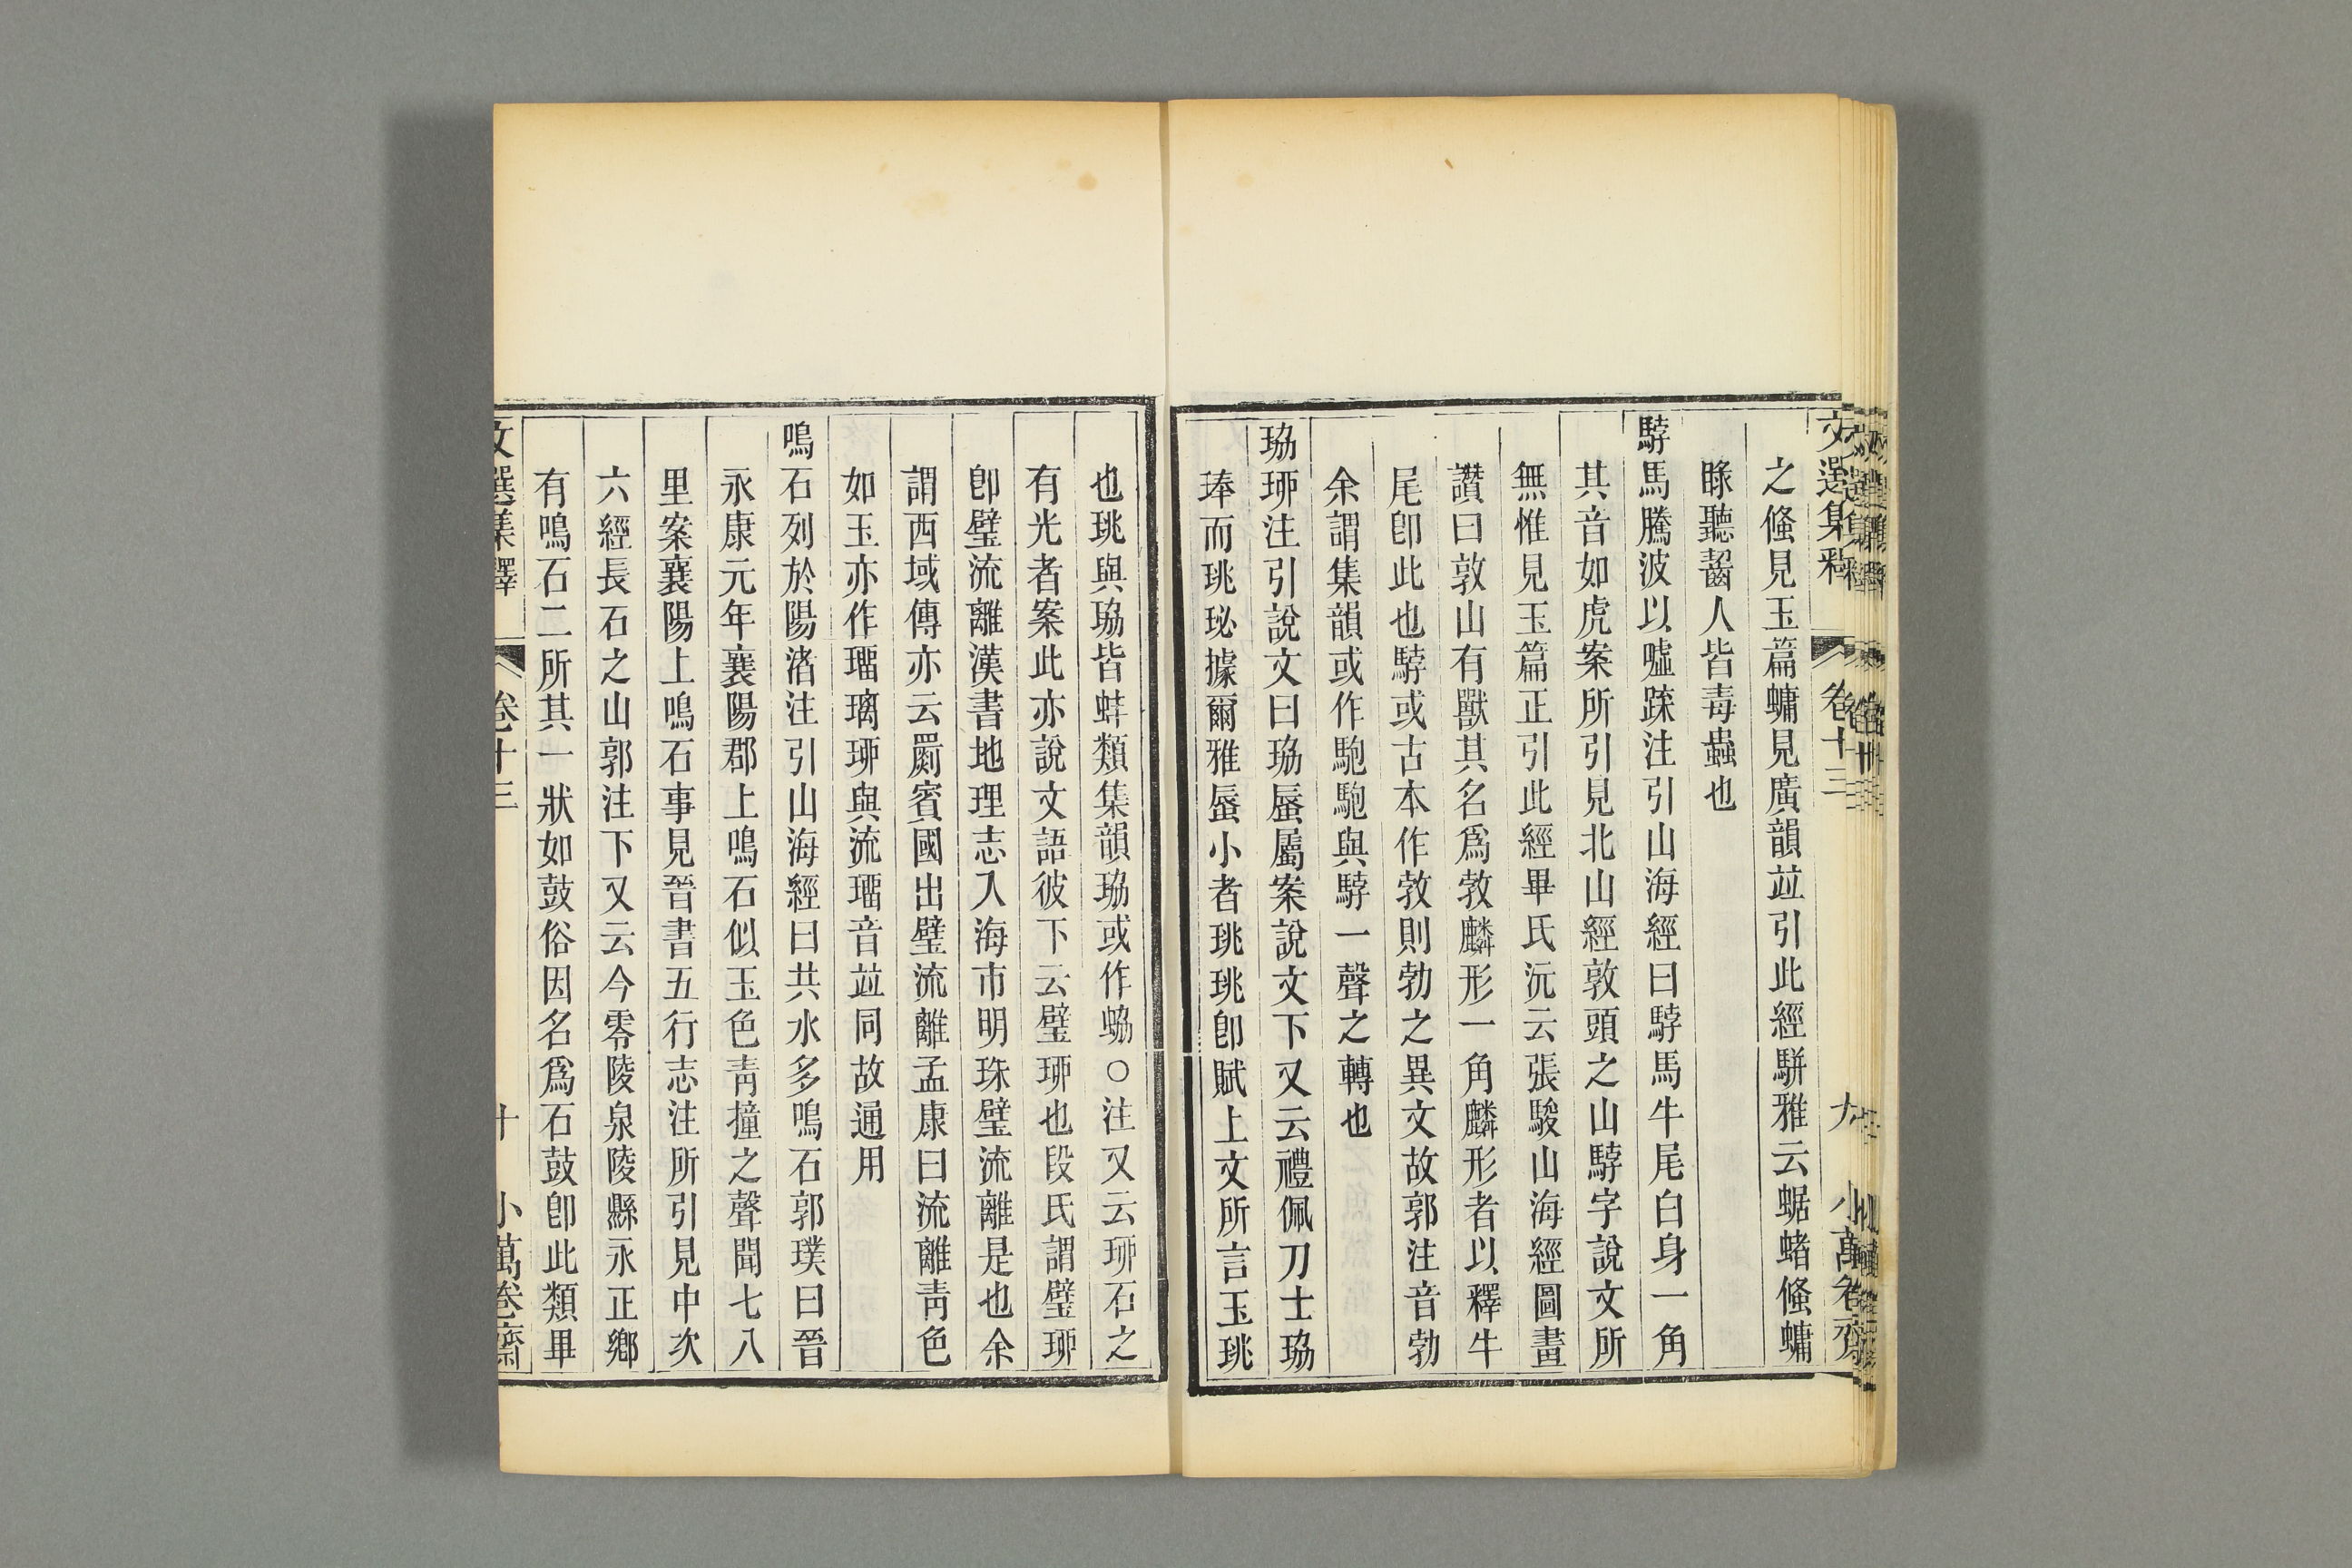 文選集釋 卷十三 九 小萬卷齋
之儵見玉篇䗤見廣韻竝引此經駢雅云蜛蝫儵䗤
睩聽齧人皆毒蟲也
騂馬騰波以噓蹀注引山海經曰騂馬牛尾白身一角
其音如虎案所引見北山經敦頭之山騂字說文所
無惟見玉篇正引此經畢氏沅云張駿山海經圖畫
讚曰敦山有獸其名爲敦麟形一角麟形者以釋牛
尾卽此也騂或古本作敦則勃之異文故郭注音勃
余謂集韻或作駂駂與騂一聲之轉也
珕珋注引說文曰珕蜃屬案說文下又云禮佩刀士珕
琫而珧珌據爾雅蜃小者珧珧卽賦上文所言玉珧
也珧與珕皆蚌類集韻珕或作蛠○注又云珋石之
有光者案此亦說文語彼下云璧珋也段氏謂璧珋
卽璧流離漢書地理志入海市明珠璧流離是也余
謂西域傳亦云罽賓國出璧流離孟康曰流離青色
如玉亦作瑠璃珋與流瑠音竝同故通用
鳴石列於陽渚注引山海經曰共水多鳴石郭璞曰晉
永康元年襄陽郡上鳴石似玉色靑撞之聲聞七八
里案襄陽上鳴石事見晉書五行志注所引見中次
六經長石之山郭注下又云今零陵泉陵縣永正鄉
有鳴石二所其一狀如鼓俗因名爲石鼓卽此類畢
文選集釋 卷十三 十 小萬卷齋